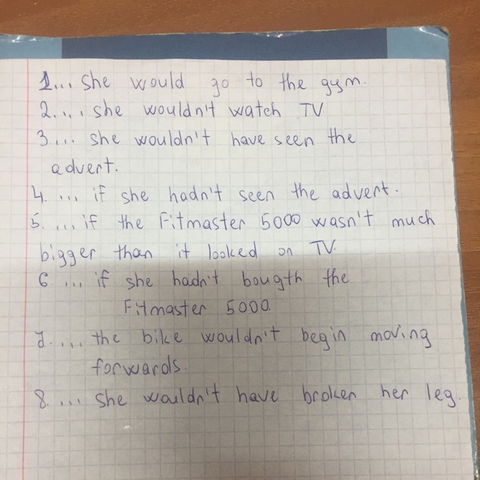 1... she would go to the gym.
2.... she wouldn't watch TV
3.... she wouldn't have seen the
advert.
4.... if she hadn't seen the advert.
5. ... if the Fitmaster 5000 wasn't much
bigger than it looked on TV
6 ... if she hadn't bougth the
Fitmaster 5000.
7.... the bike wouldn't begin moving
forwards.
8.... she wouldn't have broken her leg.